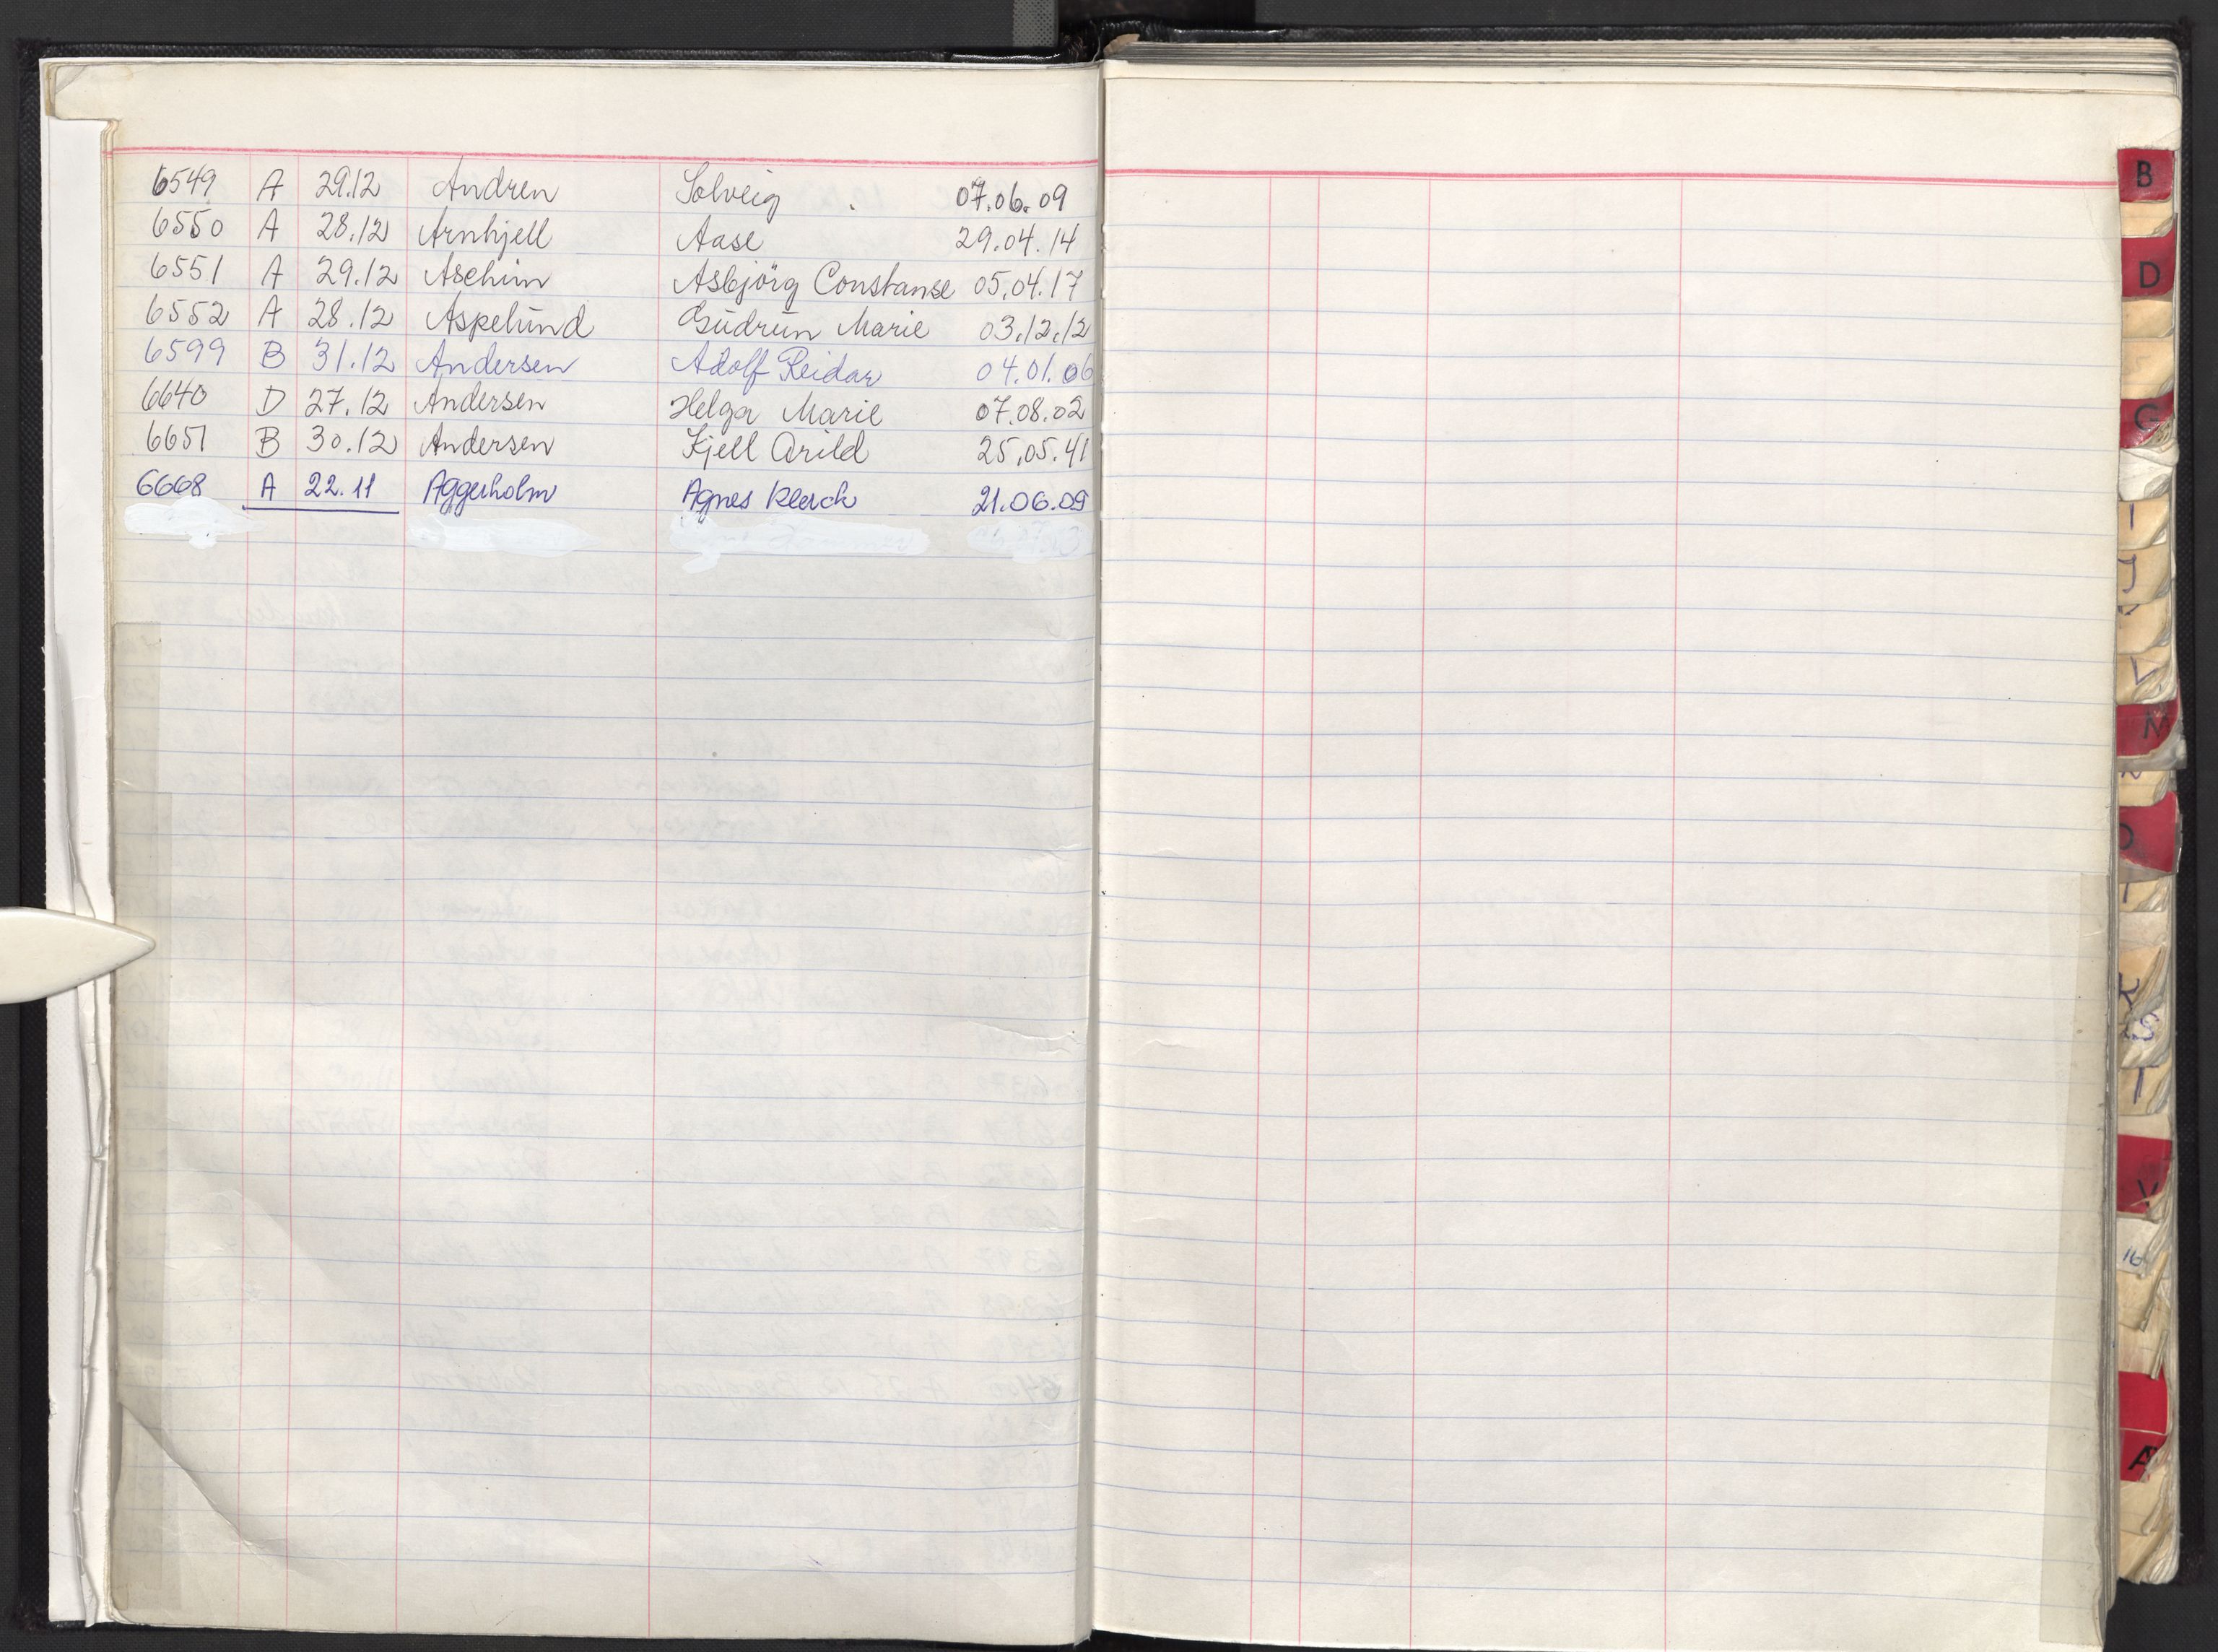 6549 A 29.12 Andren Solveig 07.06.09
6550 A 28.12 Arnhjell Aase 29.04.14
6551 A 29.12 Aschim Asbjörg Constanse 05.04.17
6552 A 28.12 Aspelund Gudrun Marie 03.12.12
6599 B 31.12 Andersen Adolf Reidar 04.01.06
6640 D 27.12 Andersen Helga Marie 07.08.02
6651 B 30.12 Andersen Kjell Arild 25.05.41
6668 A 22.11 Aggerholm Agnes Klerck 21.06.09
B
D
G
I
J
L
M
N
O
R
S
T
V
Å